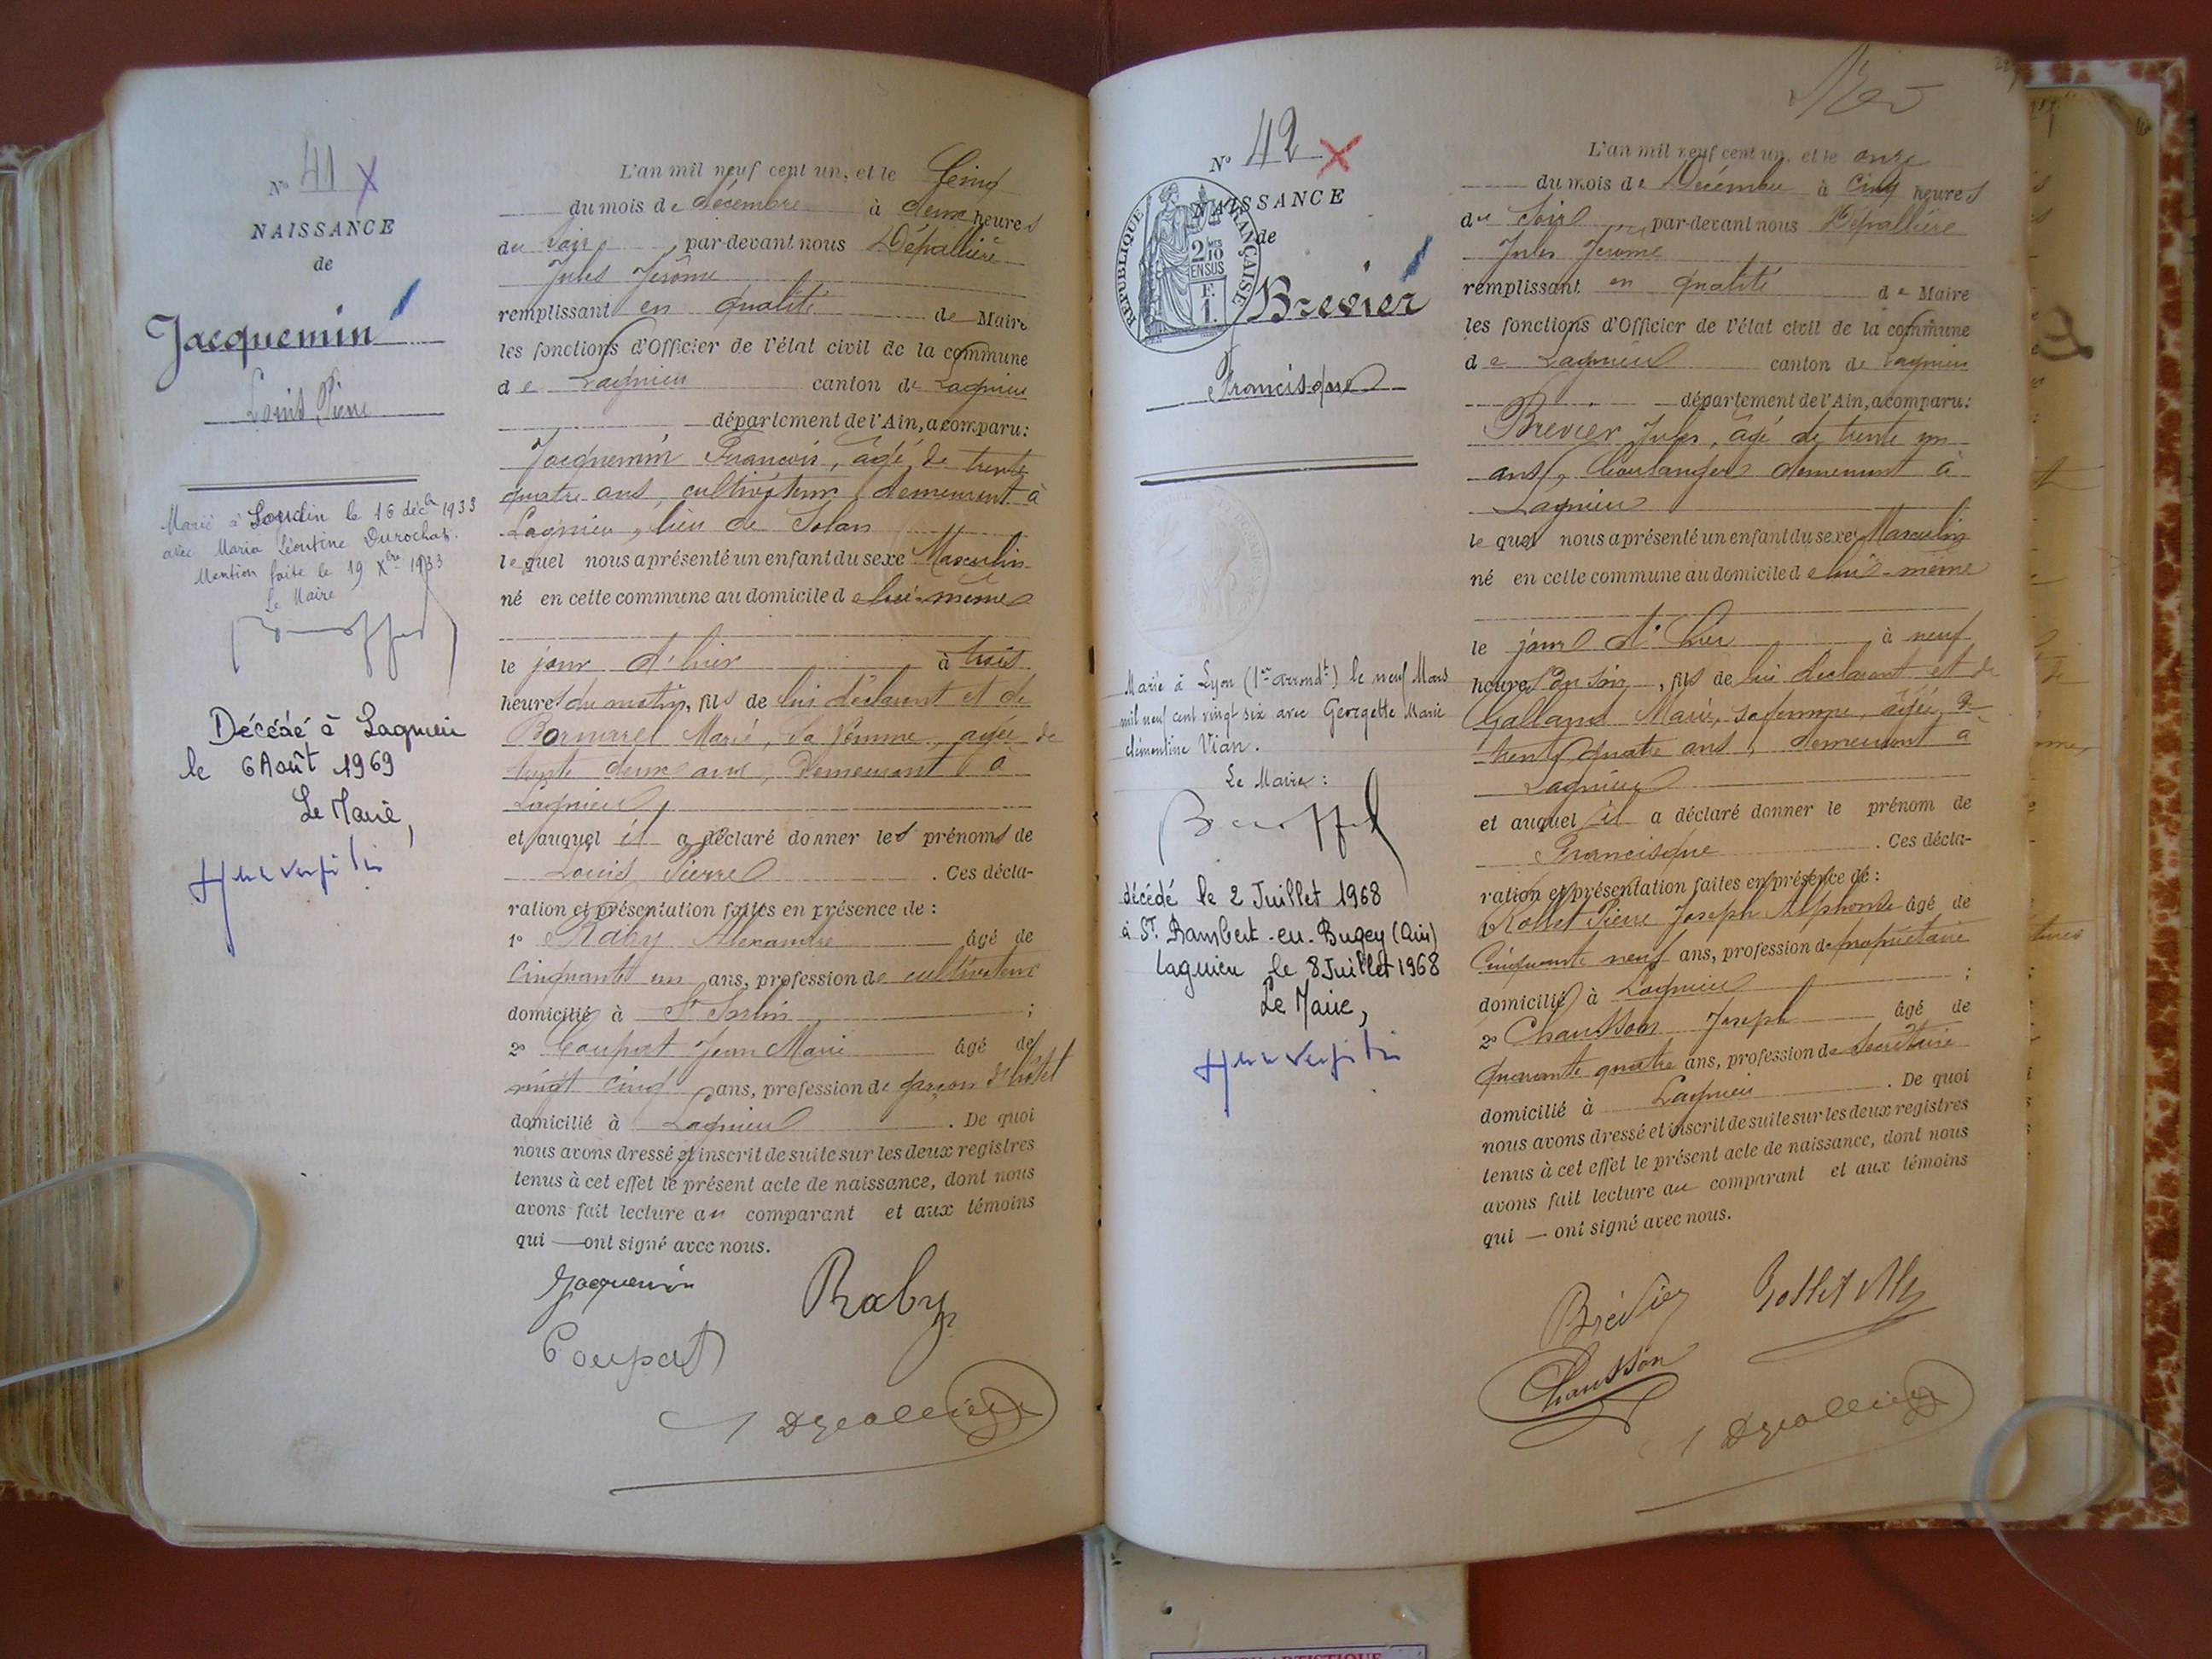 N° 41 X
NAISSANCE
de
Jacquemin
Louis Pierre
Marié à Loudin le 16 déc.bre 1933
avec Maria Léontine Durochat.
Mention faite le 19 Xbre 1933
Le Maire
Décédé à Lagnieu
le 6 Août 1969
Le Maire,
L'an mil neuf cent un, et le Cinq
du mois de décembre à deux heures
du soir par-devant nous Dépallière
Jules Jérôme
remplissant en qualité de Maire
les fonctions d'Officier de l'état civil de la commune
de Lagnieu canton de Lagnieu
département de l'Ain, a comparu:
Jacquemin François, âgé de trente
quatre ans, cultivateur, demeurant à
Lagnieu, lieu de Solan
lequel nous a présenté un enfant du sexe Masculin
né en cette commune au domicile de lui-même
le jour d'hier à trois
heures du matin, fils de lui déclarant et de
Bornarel Marie, sa femme, âgée de
trente deux ans, demeurant à
Lagnieu,
et auquel il a déclaré donner les prénoms de
Louis Pierre . Ces décla-
ration et présentation faites en présence de :
1° Raby Alexandre âgé de
Cinquante un ans, profession de cultivateur
domicilié à St Sorlin ;
2° Coupat Jean Marie âgé de
vingt cinq ans, profession de garçon d'hôtel
domicilié à Lagnieu . De quoi
nous avons dressé et inscrit de suite sur les deux registres
tenus à cet effet le présent acte de naissance, dont nous
avons fait lecture au comparant et aux témoins
qui — ont signé avec nous.
Jacquemin Raby
Coupat
J Depallière
N° 42 X
NAISSANCE
de
RÉPUBLIQUE FRANÇAISE
2/10 EN SUS
F. 1
Brevier
Francisque
Marié à Lyon (1er arrondt) le neuf Mars
mil neuf cent vingt six avec Georgette Marie
Clémentine Vian.
Le Maire :
décédé le 2 Juillet 1968
à St. Rambert-en-Bugey (Ain)
Lagnieu le 8 Juillet 1968
Le Maire,
L'an mil neuf cent un, et le onze
du mois de Décembre à Cinq heures
du Soir par-devant nous Dépallière
Jules Jérome
remplissant en qualité de Maire
les fonctions d'Officier de l'état civil de la commune
de Lagnieu canton de Lagnieu
département de l'Ain, a comparu:
Brevier Jules, âgé de trente un
ans, boulanger demeurant à
Lagnieu
lequel nous a présenté un enfant du sexe Masculin
né en cette commune au domicile de lui-même
le jour d'hier à neuf
heures du soir, fils de lui déclarant et de
Galland Marie, sa femme, âgée de
trente quatre ans, demeurant à
Lagnieu
et auquel il a déclaré donner le prénom de
Francisque . Ces décla-
ration et présentation faites en présence de :
1° Rollet Pierre Joseph Alphonse âgé de
Cinquante neuf ans, profession de propriétaire
domicilié à Lagnieu ;
2° Chausson Joseph âgé de
quarante quatre ans, profession de Secrétaire
domicilié à Lagnieu . De quoi
nous avons dressé et inscrit de suite sur les deux registres
tenus à cet effet le présent acte de naissance, dont nous
avons fait lecture au comparant et aux témoins
qui — ont signé avec nous.
Brévier Rollet
Chausson
J Depallière